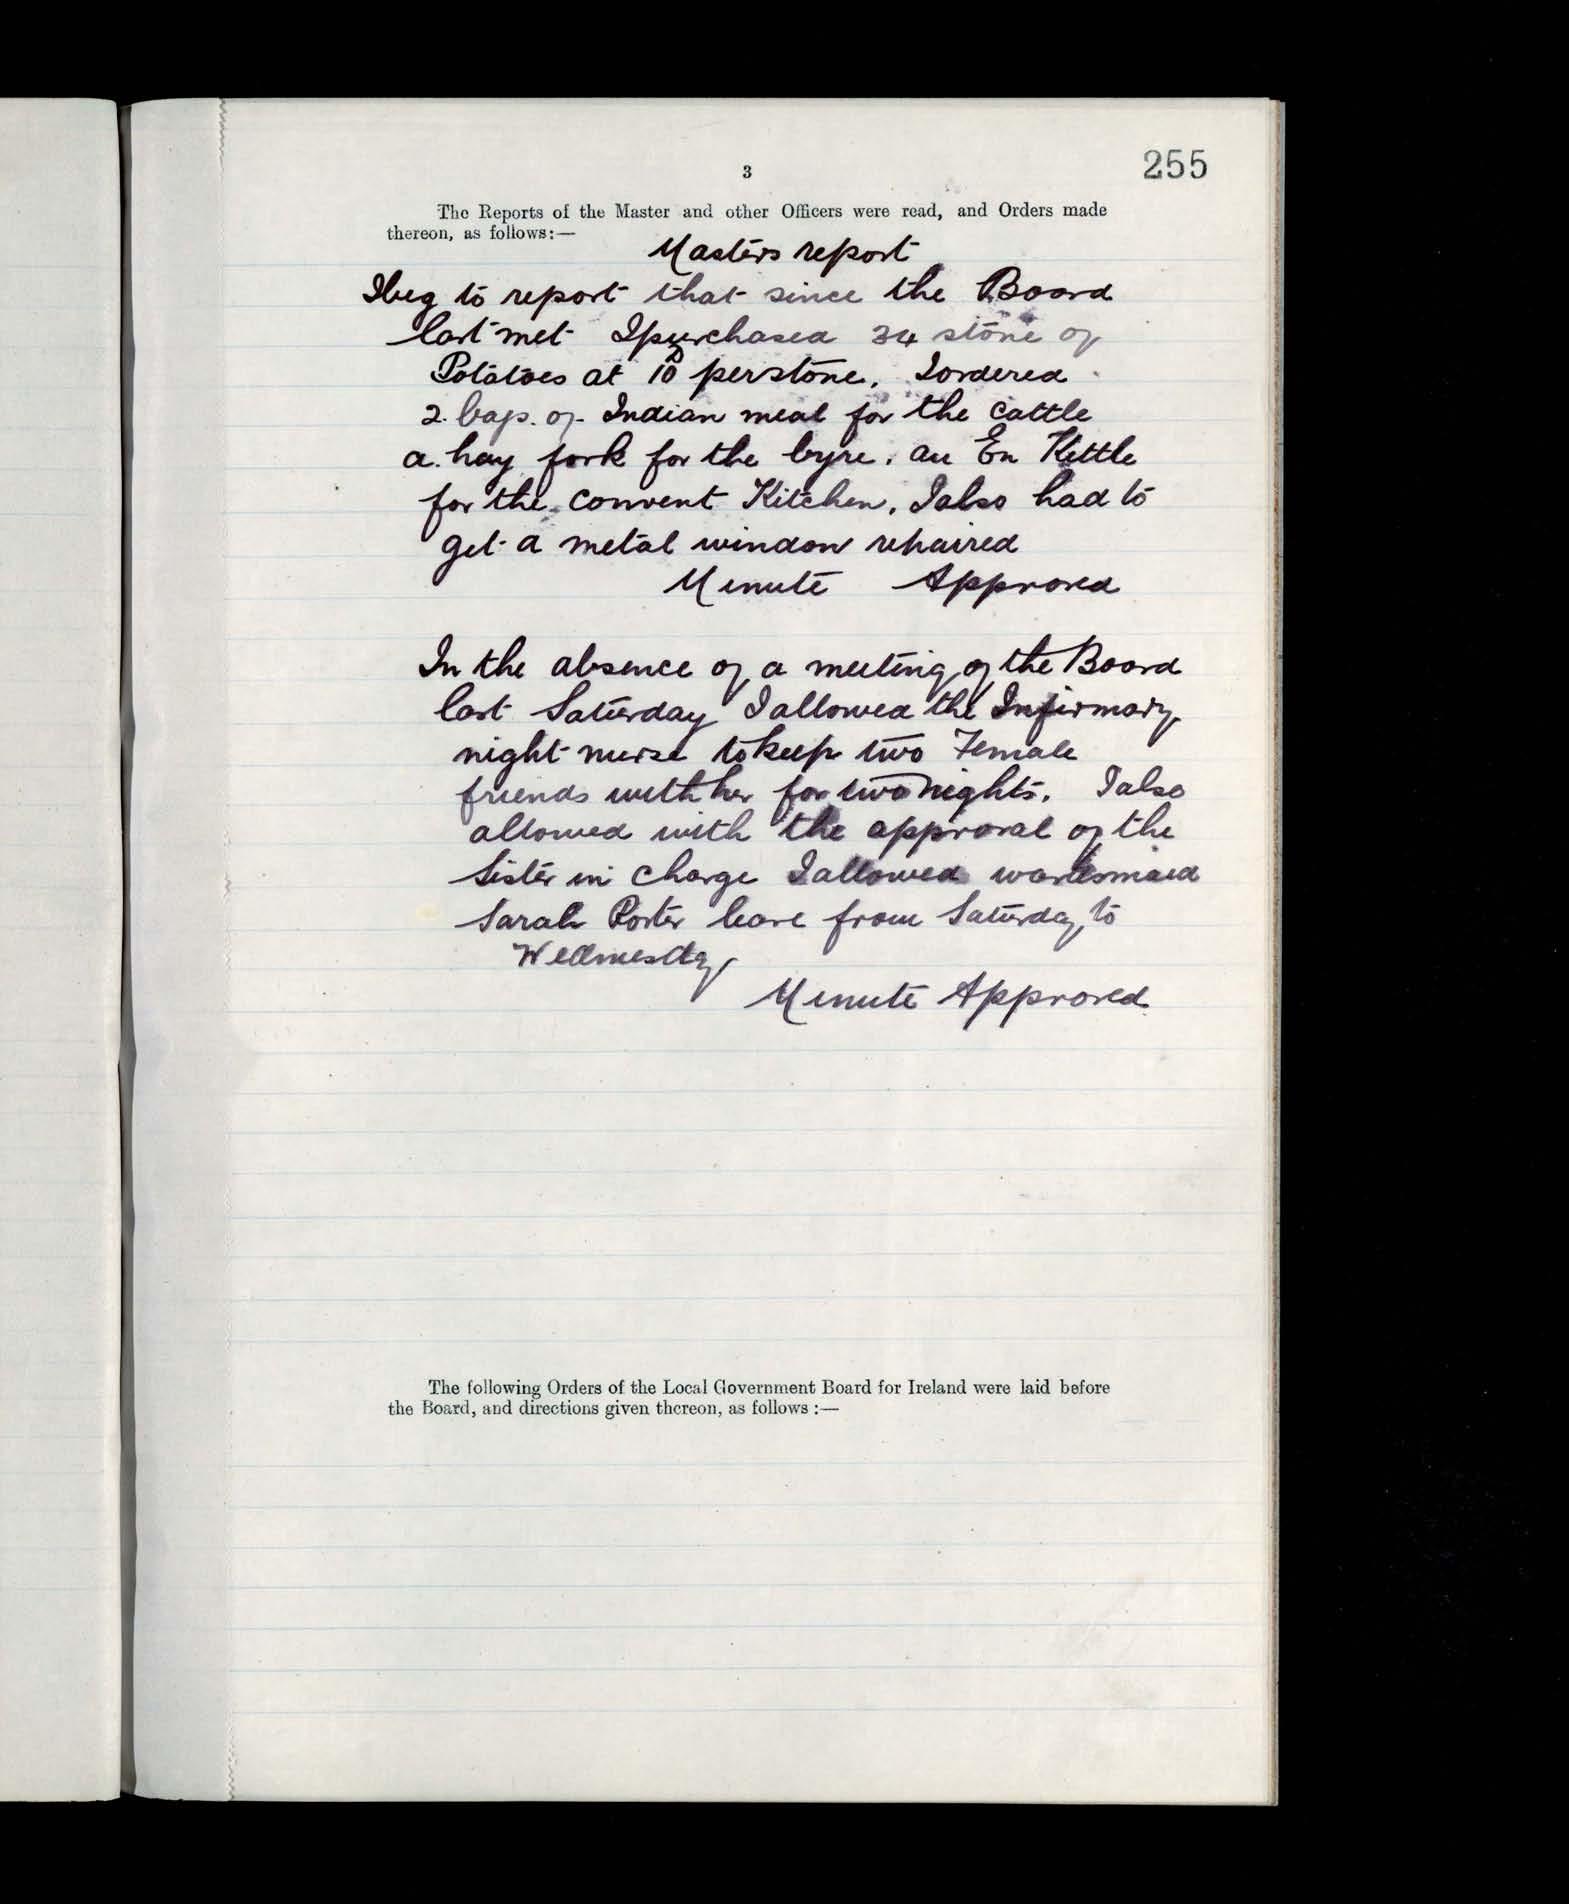 3
255
The Reports of the Master and other Officers were read, and Orders made
thereon, as follows:—
Masters report
I beg to report that since the Board
last met I purchased 34 stone of
Potatoes at 10D per stone. I ordered
2 bags of Indian meal for the cattle
a hay fork for the byre, an En Kettle
for the convent Kitchen. I also had to
get a metal window repaired
Minute Approved
In the absence of a meeting of the Board
last Saturday I allowed the Infirmary
night nurse to keep two Female
friends with her for two nights. I also
allowed with the approval of the
Sister in charge I allowed wardsmaid
Sarah Porter leave from Saturday to
Wednesday
Minute Approved
The following Orders of the Local Government Board for Ireland were laid before
the Board, and directions given thereon, as follows :—